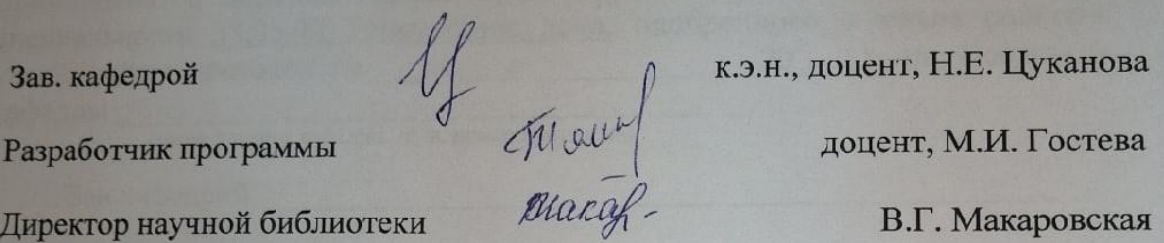 Зав. кафедрой к.э.н., доцент, Н.Е. Цуканова
Разработчик программы доцент, М.И. Гостева
Директор научной библиотеки В.Г. Макаровская